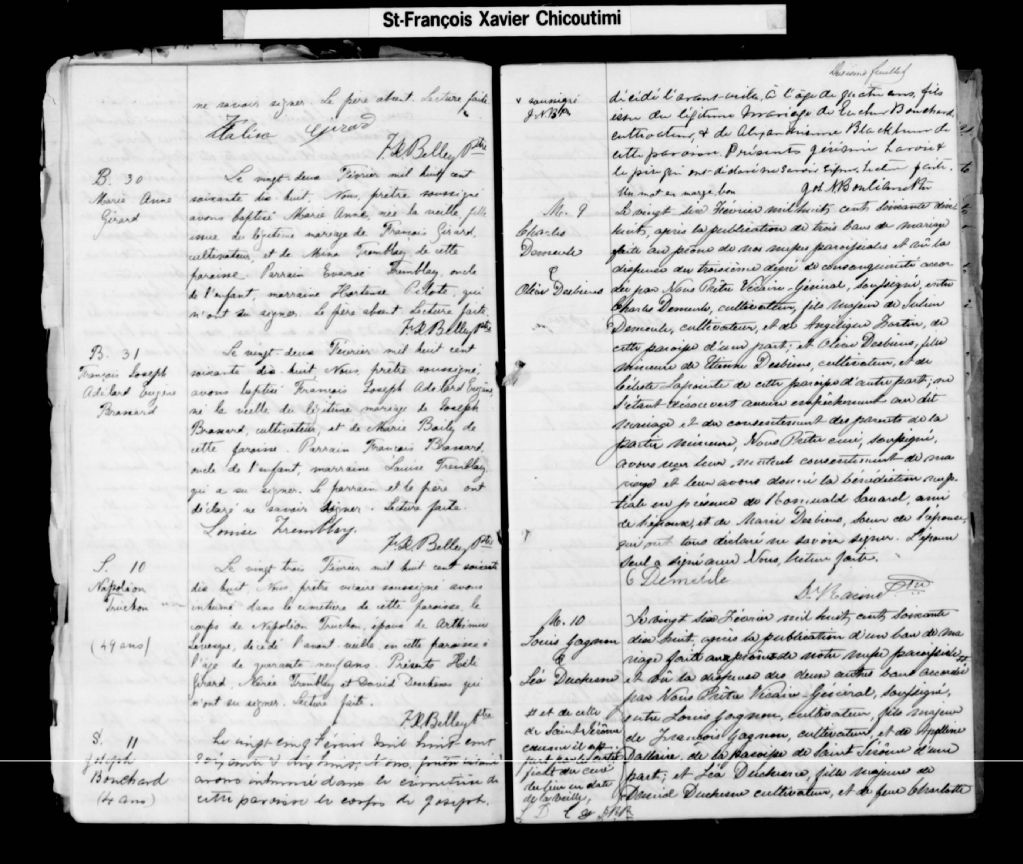 St-François Xavier Chicoutimi
ne savoir signer. Le père absent. Lecture faite.
Girard
F.X. Belley Ptre
B. 30
Marie Anne
Girard
Le vingt-deux Février mil huit cent
soixante dix huit, Nous, prêtre soussigné
avons baptisé Marie Anne, née la veille, fille
issue du légitime mariage de François Girard,
cultivateur, et de Mina Tremblay, de cette
paroisse. Parrain Tremblay, oncle
de l'enfant, marraine Hortense, qui
n'ont su signer. Le père absent. Lecture faite.
F.X. Belley Ptre
B. 31
François Joseph
Adélard Eugène
Brassard
Le vingt-deux Février mil huit cent
soixante dix huit Nous, prêtre soussigné,
avons baptisé François Joseph Adélard Eugène,
né la veille du légitime mariage de Joseph
Brassard, cultivateur, et de Marie Boily de
cette paroisse. Parrain François Brassard,
oncle de l'enfant, marraine Louise Tremblay,
qui a su signer. Le parrain et le père ont
déclaré ne savoir signer. Lecture faite.
Louise Tremblay
F.X. Belley Ptre
S. 10
Napoléon
Truchon
(49 ans)
Le vingt trois Février mil huit cent soixante
dix huit, Nous, prêtre vicaire soussigné avons
inhumé dans le cimetière de cette paroisse, le
corps de Napoléon Truchon, époux de Arthémise
Levesque, décédé l'avant veille, en cette paroisse à
l'âge de quarante neuf ans. Présents
Girard, Tremblay et David Deschenes qui
n'ont su signer. Lecture faite.
F.X. Belley Ptre
S. 11
Joseph
Bouchard
(4 ans)
Le vingt cinq Février mil huit cent
soixante dix huit, Nous, prêtre vicaire
avons inhumé dans le cimetière de
cette paroisse le corps de Joseph,
feuillet
v soussigné
J.N.B. Ptr
décédé l'avant-veille, à l'âge de quatre ans, fils
issu du légitime mariage de Bouchard,
cultivateur, & de Blackburn de
cette paroisse. Présents Lavoie &
le père qui ont déclaré ne savoir signer, lecture faite.
Un mot en marge, bon
M. 9
Charles
Demeule
&
Oléa Desbiens
Le vingt six Février mil huit cent soixante dix
huit, après la publication de trois bans de mariage
faite au prône de nos messes paroissiales et vû la
dispense du troisième degré de consanguinité accor
dée par Nous Prêtre Vicaire-Général, soussigné, entre
Charles Demeule, cultivateur, fils majeur de Julien
Demeule, cultivateur, et de Angélique Fortin, de
cette paroisse d'une part; et Oléa Desbiens, fille
mineure de Etienne Desbiens, cultivateur, et de
Céleste Lapointe de cette paroisse d'autre part; ne
s'étant découvert aucun empêchement au dit
mariage et du consentement des parents de la
partie mineure, Nous Prêtre curé, soussigné,
avons reçu leur mutuel consentement de ma
riage et leur avons donné la bénédiction nup
tiale en présence de Romuald Savard, ami
de l'époux, et de Marie Desbiens, soeur de l'épouse,
qui ont tous déclaré ne savoir signer. L'époux
seul a signé avec Nous, lecture faite.
C Demeule
D. Racine Ptre
M. 10
Louis Gagnon
&
Léa Duchesne
# et de celle
de Saint Jérôme
comme il ap-
pert par le certi
ficat du curé
du lieu en date
de la veille,
Le vingt six Février mil huit cent soixante
dix huit, après la publication d'un ban de ma
riage faite au prône de notre messe paroissiale #
et vû la dispense des deux autres bans accordée
par Nous Prêtre Vicaire-Général, soussigné,
entre Louis Gagnon, cultivateur, fils majeur
de François Gagnon, cultivateur, et de
Dallaire, de la paroisse de Saint Jérôme d'une
part; et Léa Duchesne, fille majeure de
Duchesne cultivateur, et de feue Charlotte